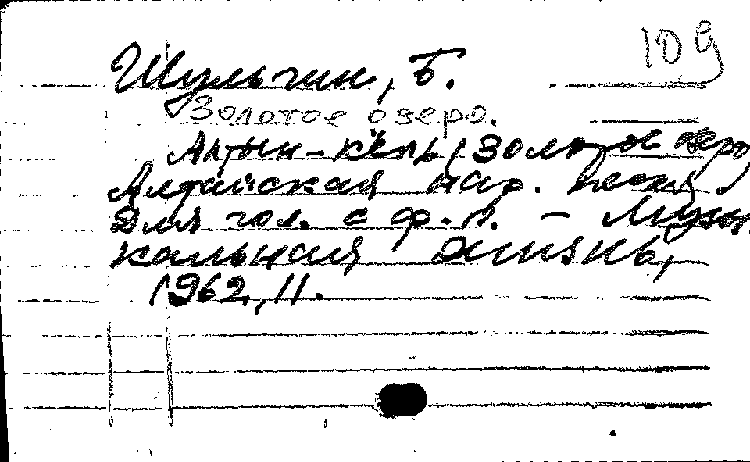 109
Шульгин, Б.
Золотое озеро.
Алтын-кёль (Золотое озеро)
Алтайская нар. песня.
Для гол. с ф.-п. – Музы
кальная жизнь,
1962, 11.